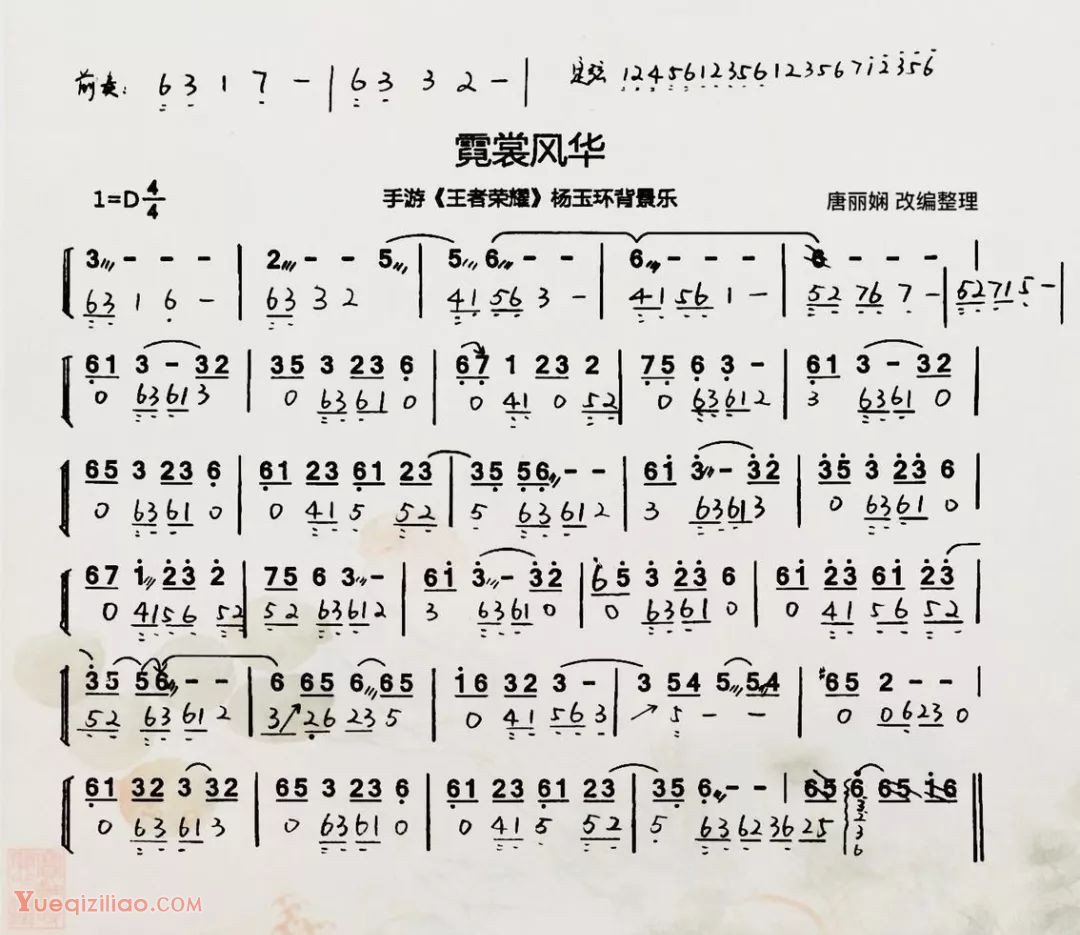 前奏: 6 3 1 7 - | 6 3 3 2 - | 定弦 1245612356123567i2356
霓裳风华
1=D 4/4 手游《王者荣耀》杨玉环背景乐 唐丽娴 改编整理
3 - - - | 2 - - 5 | 5 6 - - | 6 - - - | 6 - - - |
63 1 6 - | 63 3 2 | 41 56 3 - | 41 56 1 - | 52 76 7 - | 52 71 5 -
61 3 - 32 | 35 3 23 6 | 67 1 23 2 | 75 6 3 - | 61 3 - 32 |
0 63 61 3 | 0 63 61 0 | 0 41 0 52 | 0 63 61 2 | 3 63 61 0
65 3 23 6 | 61 23 61 23 | 35 56 - - | 61 3 - 32 | 35 3 23 6 |
0 63 61 0 | 0 41 5 52 | 5 63 61 2 | 3 63 61 3 | 0 63 61 0
67 1 23 2 | 75 6 3 - | 61 3 - 32 | 65 3 23 6 | 61 23 61 23
0 41 56 52 | 52 63 61 2 | 3 63 61 0 | 0 63 61 0 | 0 41 56 52
35 56 - - | 6 65 6 65 | i6 32 3 - | 3 54 5 54 | #65 2 - - |
52 63 61 2 | 3 26 23 5 | 0 41 56 3 | 5 - - | 0 06 23 0
61 32 3 32 | 65 3 23 6 | 61 23 61 23 | 35 6 - - | 65 6 65 i6 ‖
0 63 61 3 | 0 63 61 0 | 0 41 5 52 | 5 63 62 36 25 | 3 2 3 6
Yueqiziliao.COM